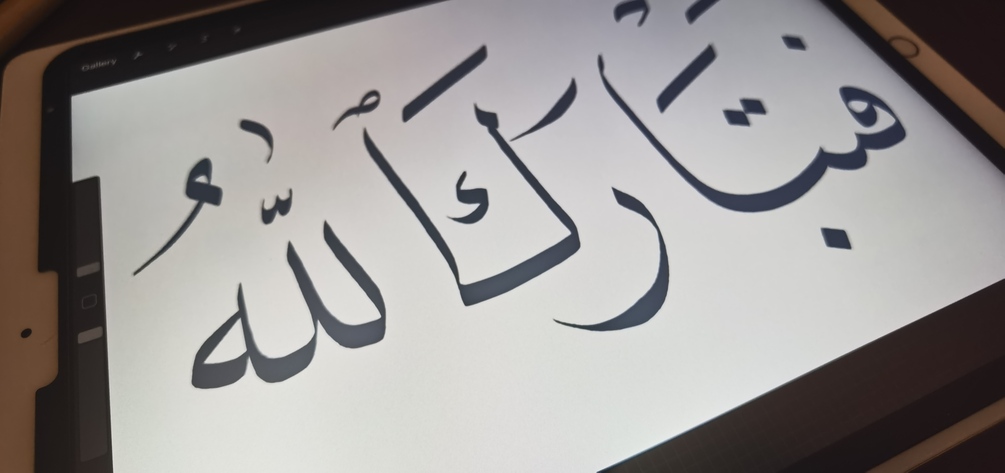 Gallery
فَتَبَارَكَ ٱللَّهُ